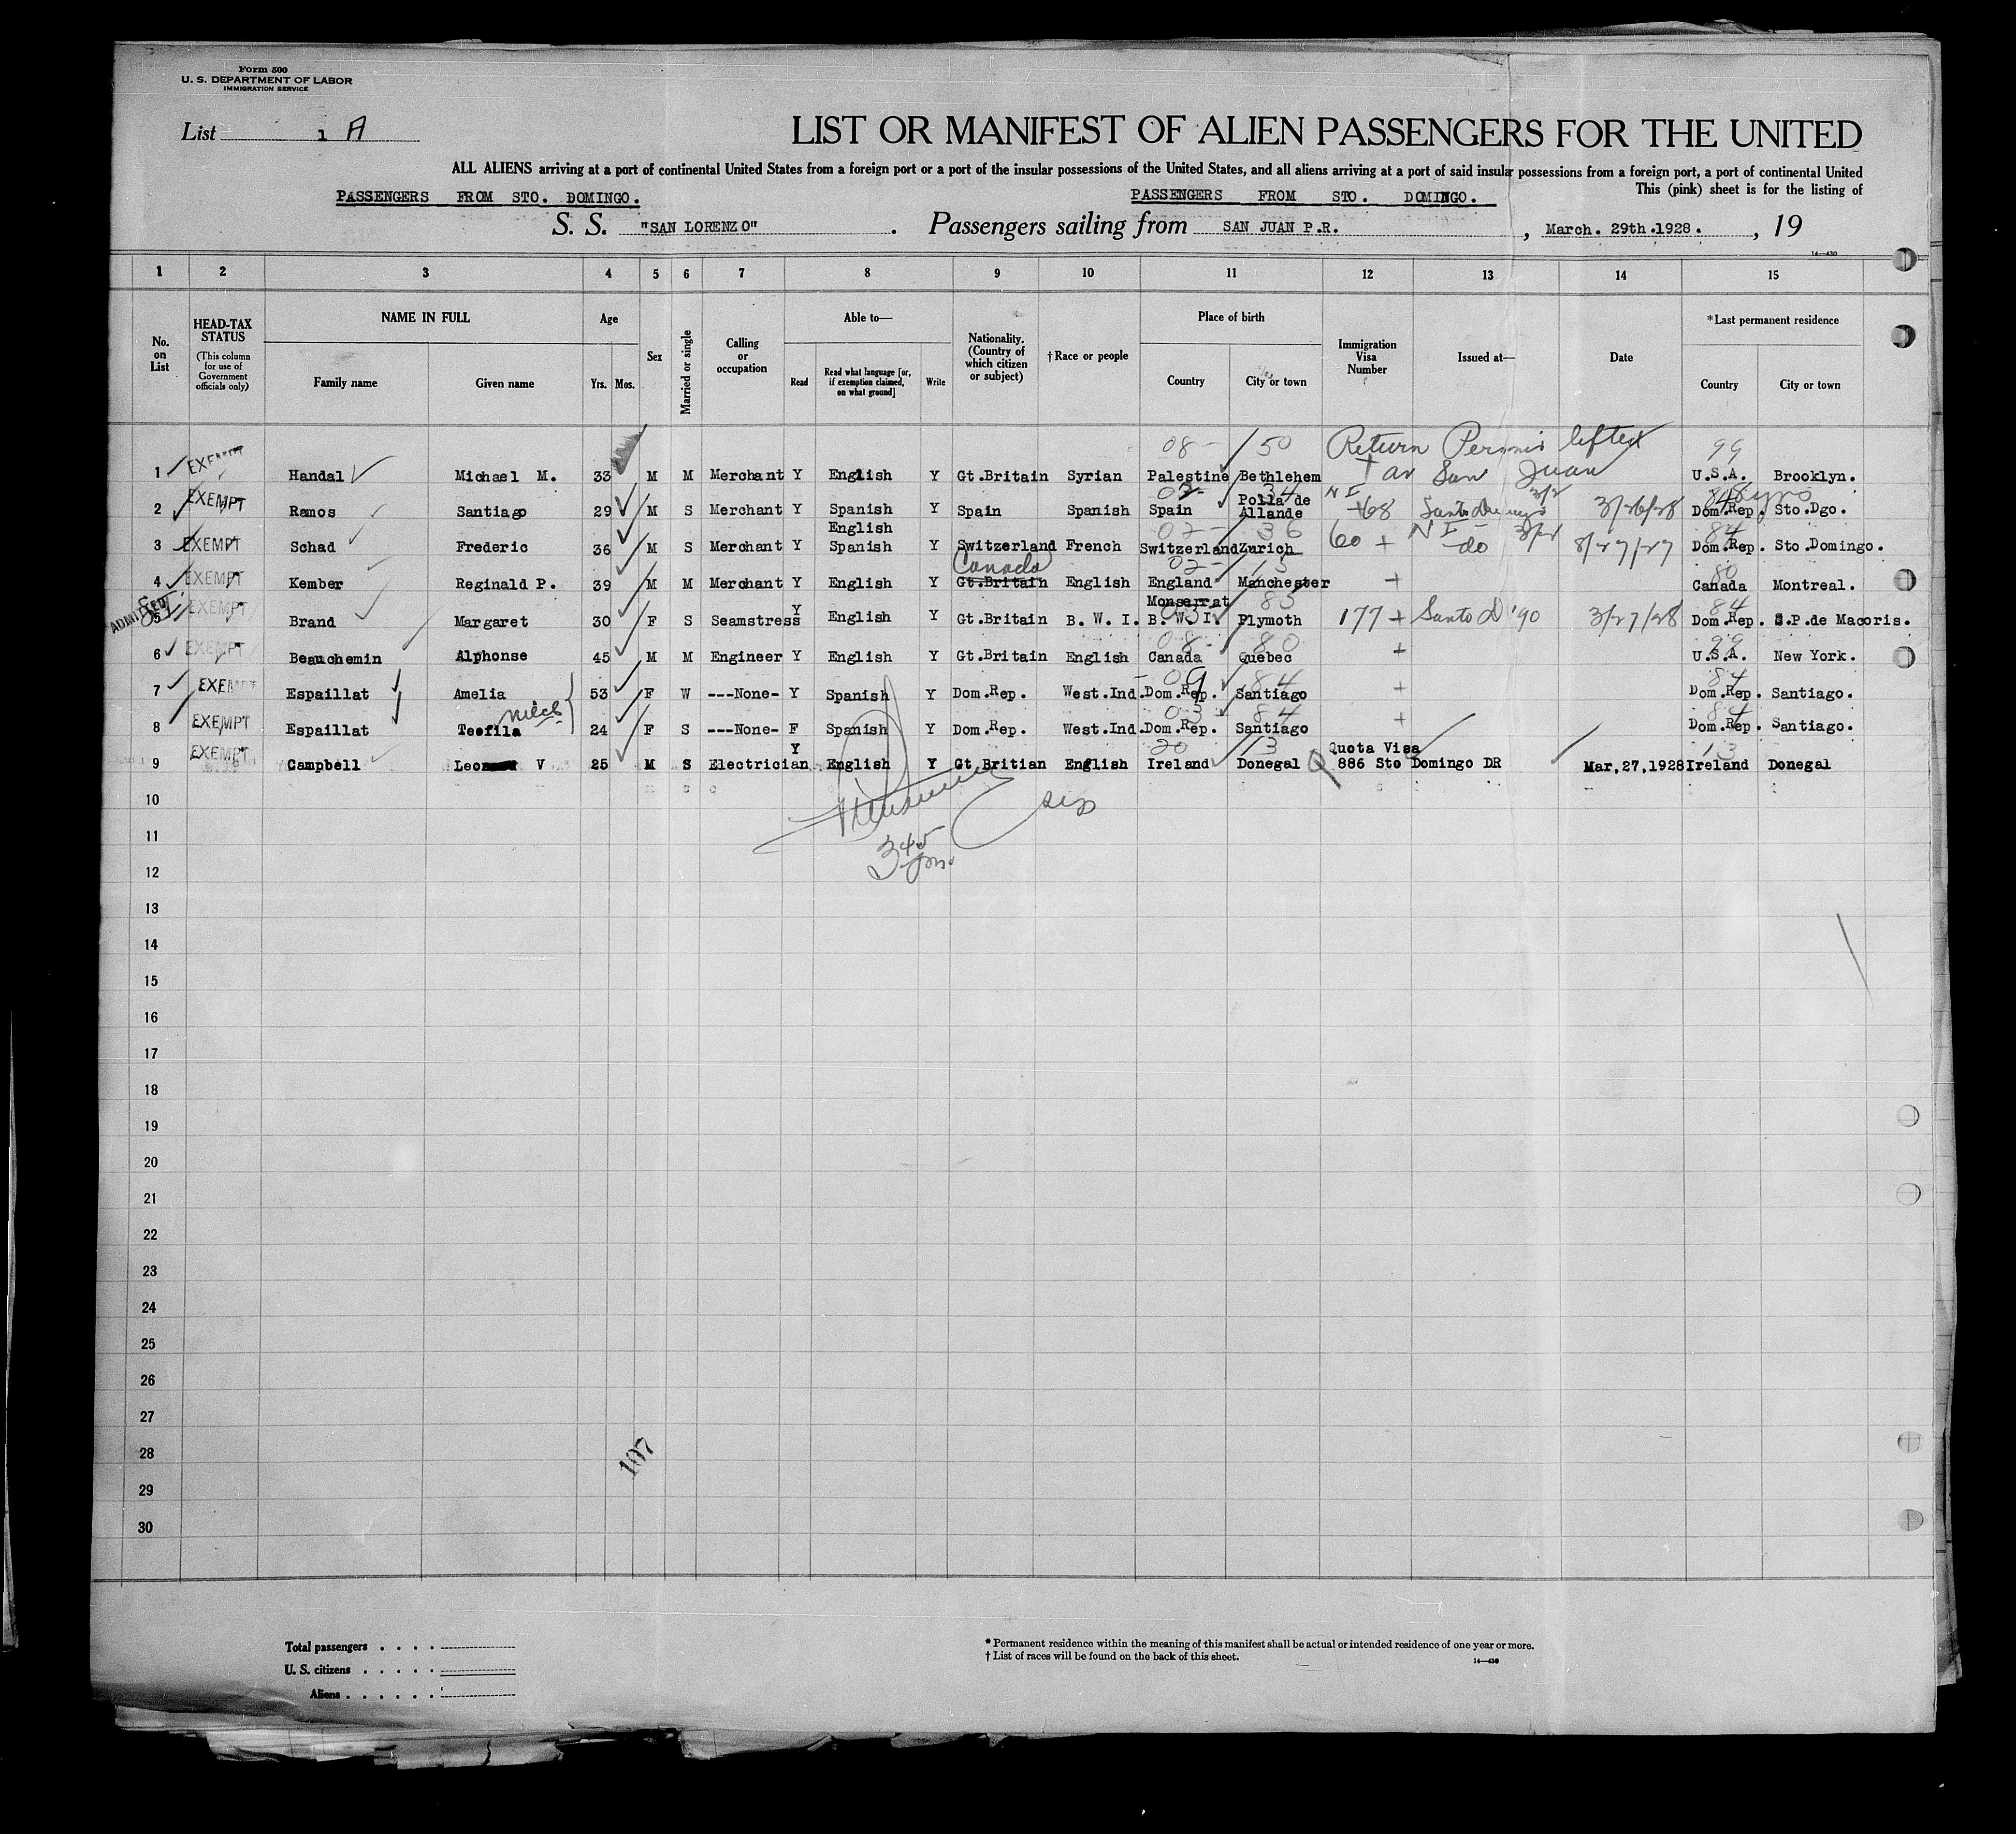 Form 500
U. S. DEPARTMENT OF LABOR
IMMIGRATION SERVICE
List 1 A
LIST OR MANIFEST OF ALIEN PASSENGERS FOR THE UNITED
ALL ALIENS arriving at a port of continental United States from a foreign port or a port of the insular possessions of the United States, and all aliens arriving at a port of said insular possessions from a foreign port, a port of continental United
This (pink) sheet is for the listing of
PASSENGERS FROM STO. DOMINGO. PASSENGERS FROM STO. DOMINGO.
S. S. "SAN LORENZO" . Passengers sailing from SAN JUAN P.R. , March. 29th.1928. , 19
14—430
1 2 3 4 5 6 7 8 9 10 11 12 13 14 15
No. on List
HEAD-TAX STATUS
(This column for use of Government officials only)
NAME IN FULL
Family name Given name
Age
Yrs. Mos.
Sex
Married or single
Calling or occupation
Able to—
Read
Read what language [or, if exemption claimed, on what ground]
Write
Nationality. (Country of which citizen or subject)
†Race or people
Place of birth
Country City or town
Immigration Visa Number
Issued at—
Date
*Last permanent residence
Country City or town
08- 50 Return Permit lifted 99
1 EXEMPT Handal Michael M. 33 M M Merchant Y English Y Gt.Britain Syrian Palestine Bethlehem at San Juan U.S.A. Brooklyn.
2 EXEMPT Ramos Santiago 29 M S Merchant Y Spanish Y Spain Spanish Spain Polla de Allande N I 68 Santo Domingo 3/26/28 Dom.Rep. Sto.Dgo.
3 EXEMPT Schad Frederic 36 M S Merchant Y English Spanish Y Switzerland French Switzerland Zurich 60 N I do 8/27/27 Dom.Rep. Sto.Domingo.
4 EXEMPT Kember Reginald P. 39 M M Merchant Y English Y Canada Gt.Britain English England Manchester Canada Montreal.
5 ADMITTED EXEMPT Brand Margaret 30 F S Seamstress Y English Y Gt.Britain B. W. I. Monserrat B. W. I. Plymoth 177 Santo D 3/27/28 Dom.Rep. S.P.de Macoris.
6 EXEMPT Beauchemin Alphonse 45 M M Engineer Y English Y Gt.Britain English Canada Quebec U.S.A. New York.
7 EXEMPT Espaillat Amelia 53 F W ---None- Y Spanish Y Dom.Rep. West.Ind. Dom.Rep. Santiago Dom.Rep. Santiago.
niece
8 EXEMPT Espaillat Teofila 24 F S ---None- F Spanish Y Dom.Rep. West.Ind. Dom.Rep. Santiago Dom.Rep. Santiago.
9 EXEMPT Campbell Leo V 25 M S Electrician Y English Y Gt Britian English Ireland Donegal Quota Visa 886 Sto Domingo DR Mar,27,1928 Ireland Donegal
10
11
12
13
14
15
16
17
18
19
20
21
22
23
24
25
26
27
28
29
30
107
Total passengers . . . .
U. S. citizens . . . . .
Aliens . . . . . .
* Permanent residence within the meaning of this manifest shall be actual or intended residence of one year or more.
† List of races will be found on the back of this sheet.
14—430